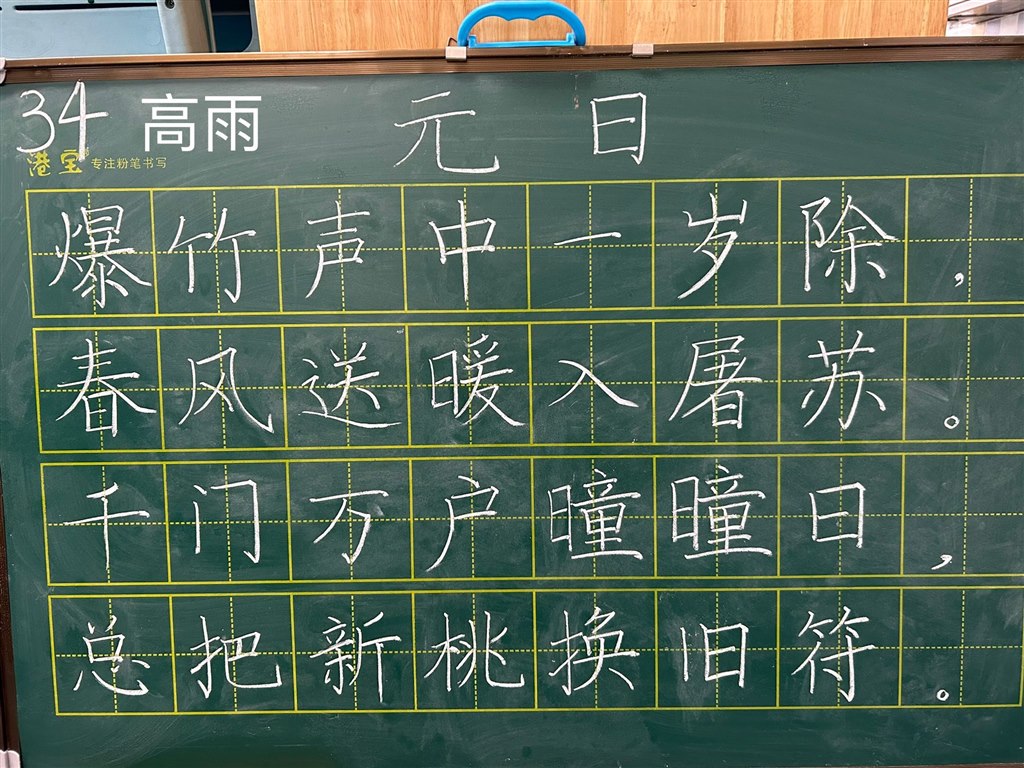 34 高雨 元日
港宝 专注粉笔书写
爆竹声中一岁除，
春风送暖入屠苏。
千门万户曈曈日，
总把新桃换旧符。